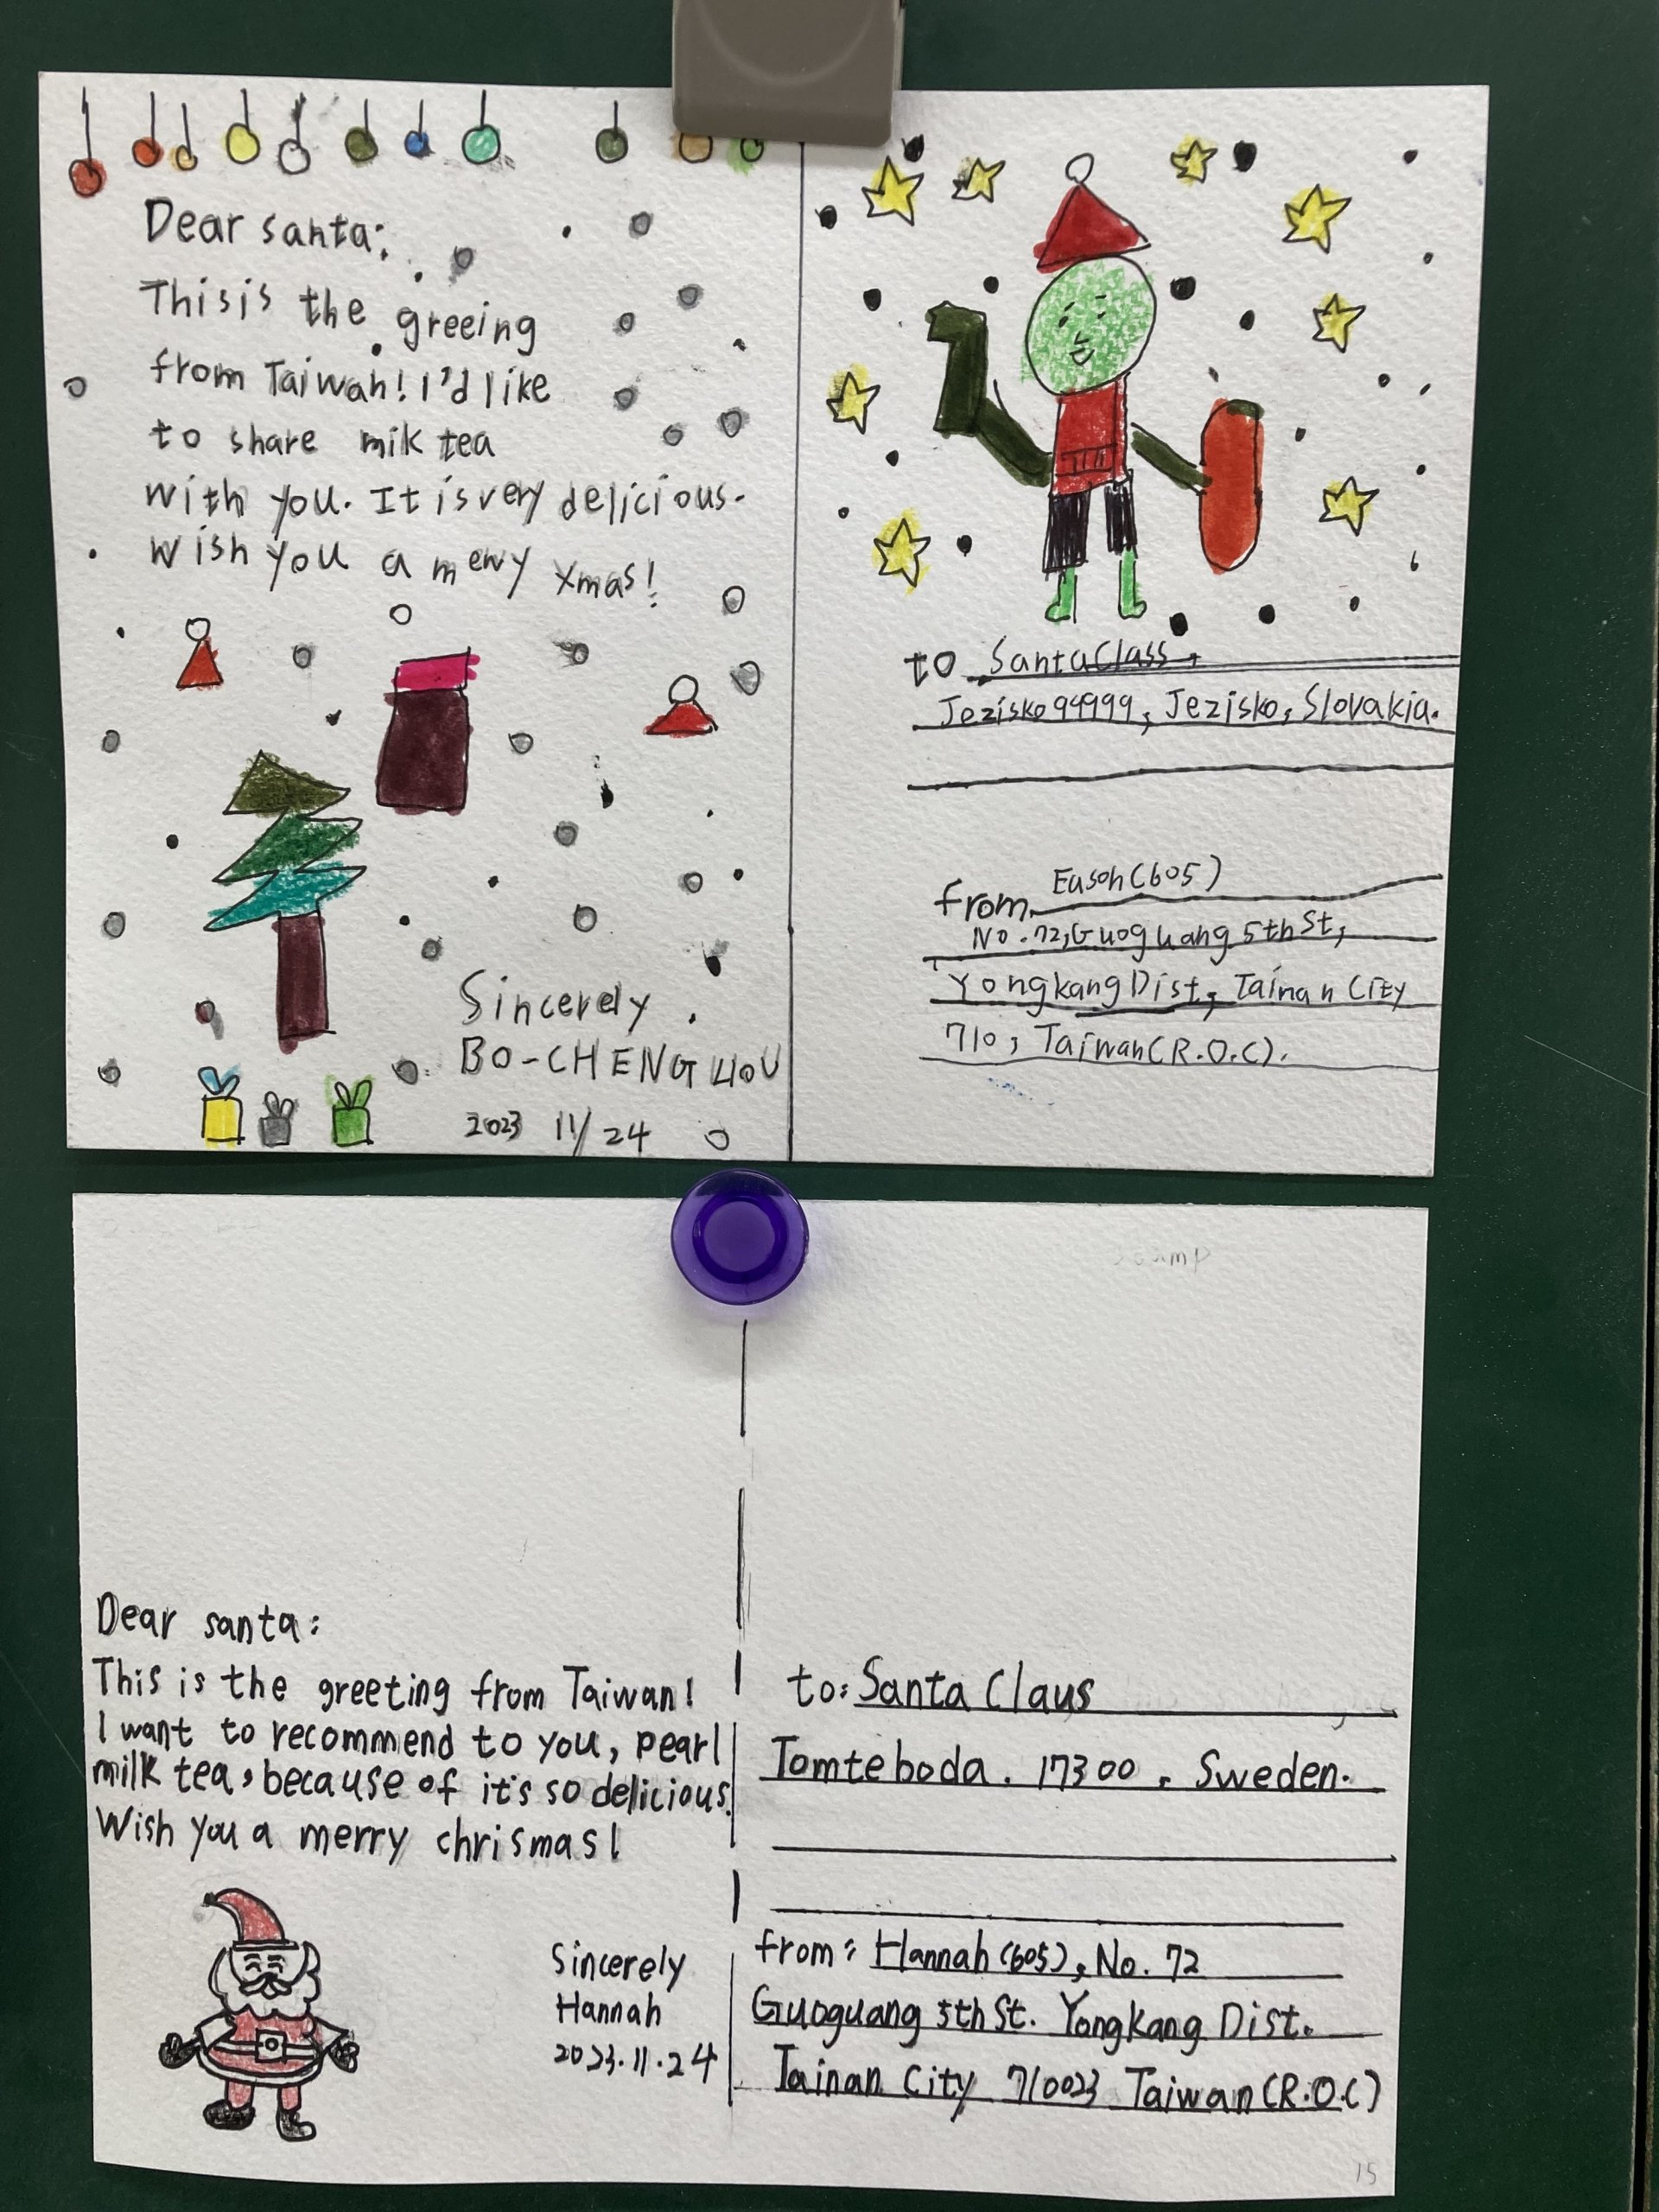 Dear santa:
This is the greeing
from Taiwan! I'd like
to share mik tea
with you. It is very delicious.
Wish you a merry Xmas!
Sincerely
BO-CHENG
2023 11/24
to Santa Class,
Jezisko 99999, Jezisko, Slovakia.
from Eason (605)
No. 72, Guoguang 5th St,
Yongkang Dist, Tainan City
710, Taiwan (R.O.C).
Dear santa:
This is the greeting from Taiwan!
I want to recommend to you, pearl
milk tea, because of it's so delicious.
Wish you a merry chrismas!
Sincerely
Hannah
2023.11.24
to: Santa Claus
Tomteboda. 17300, Sweden.
from: Hannah (605), No. 72
Guoguang 5th St. Yongkang Dist.
Tainan City 710023 Taiwan (R.O.C)
15